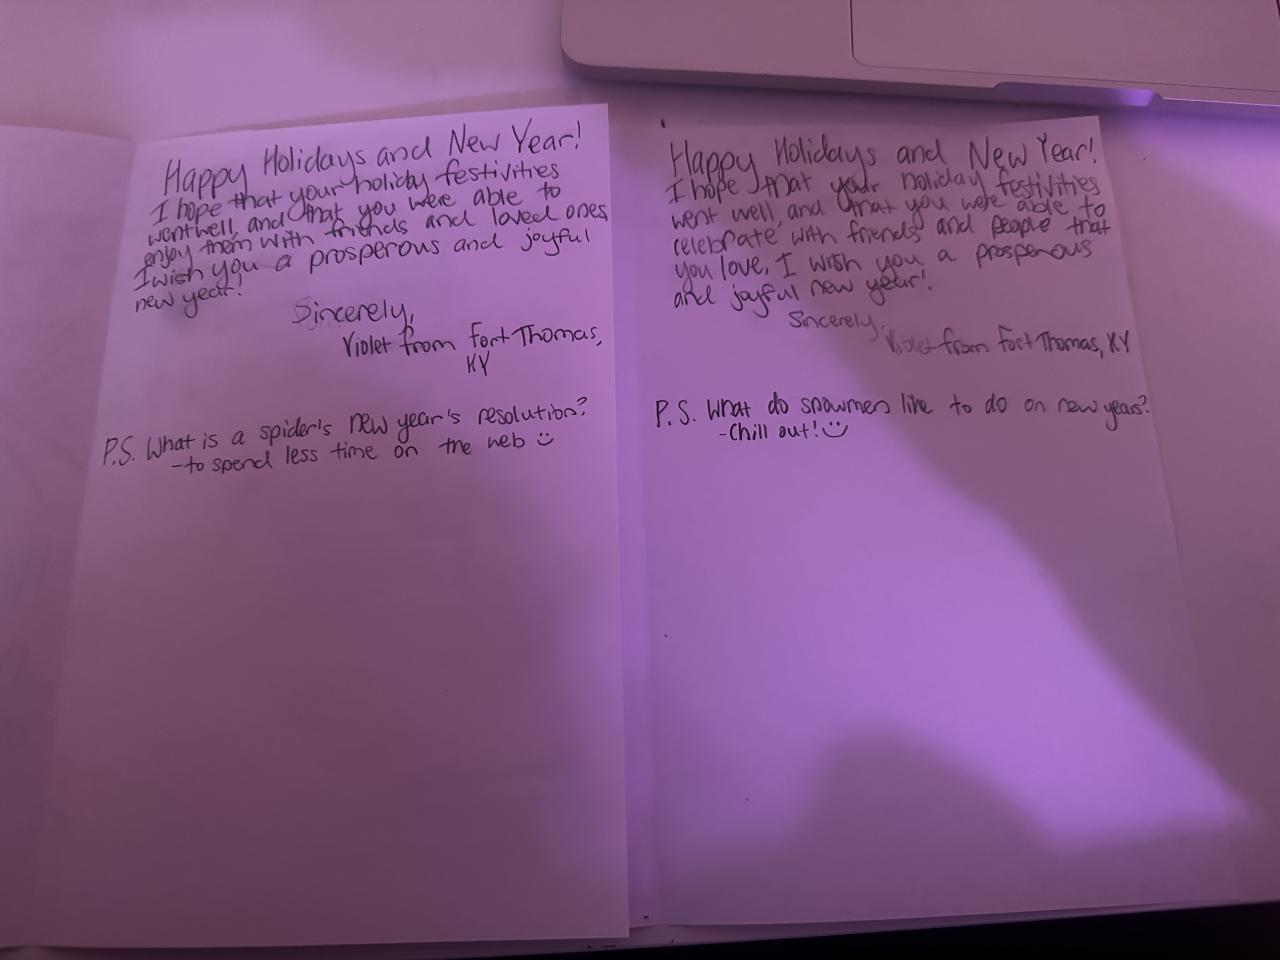 Happy Holidays and New Year!
I hope that your holiday festivities
went well, and that you were able to
enjoy them with friends and loved ones,
I wish you a prosperous and joyful
new year!
Sincerely,
Violet from Fort Thomas,
KY
P.S. What is a spider's new year's resolution?
-to spend less time on the web
Happy Holidays and New Year!
I hope that your holiday festivities
went well, and that you were able to
celebrate with friends and people that
you love. I wish you a prosperous
and joyful new year!
Sincerely,
Violet from Fort Thomas, KY
P.S. What do snowmen like to do on new years?
-Chill out!